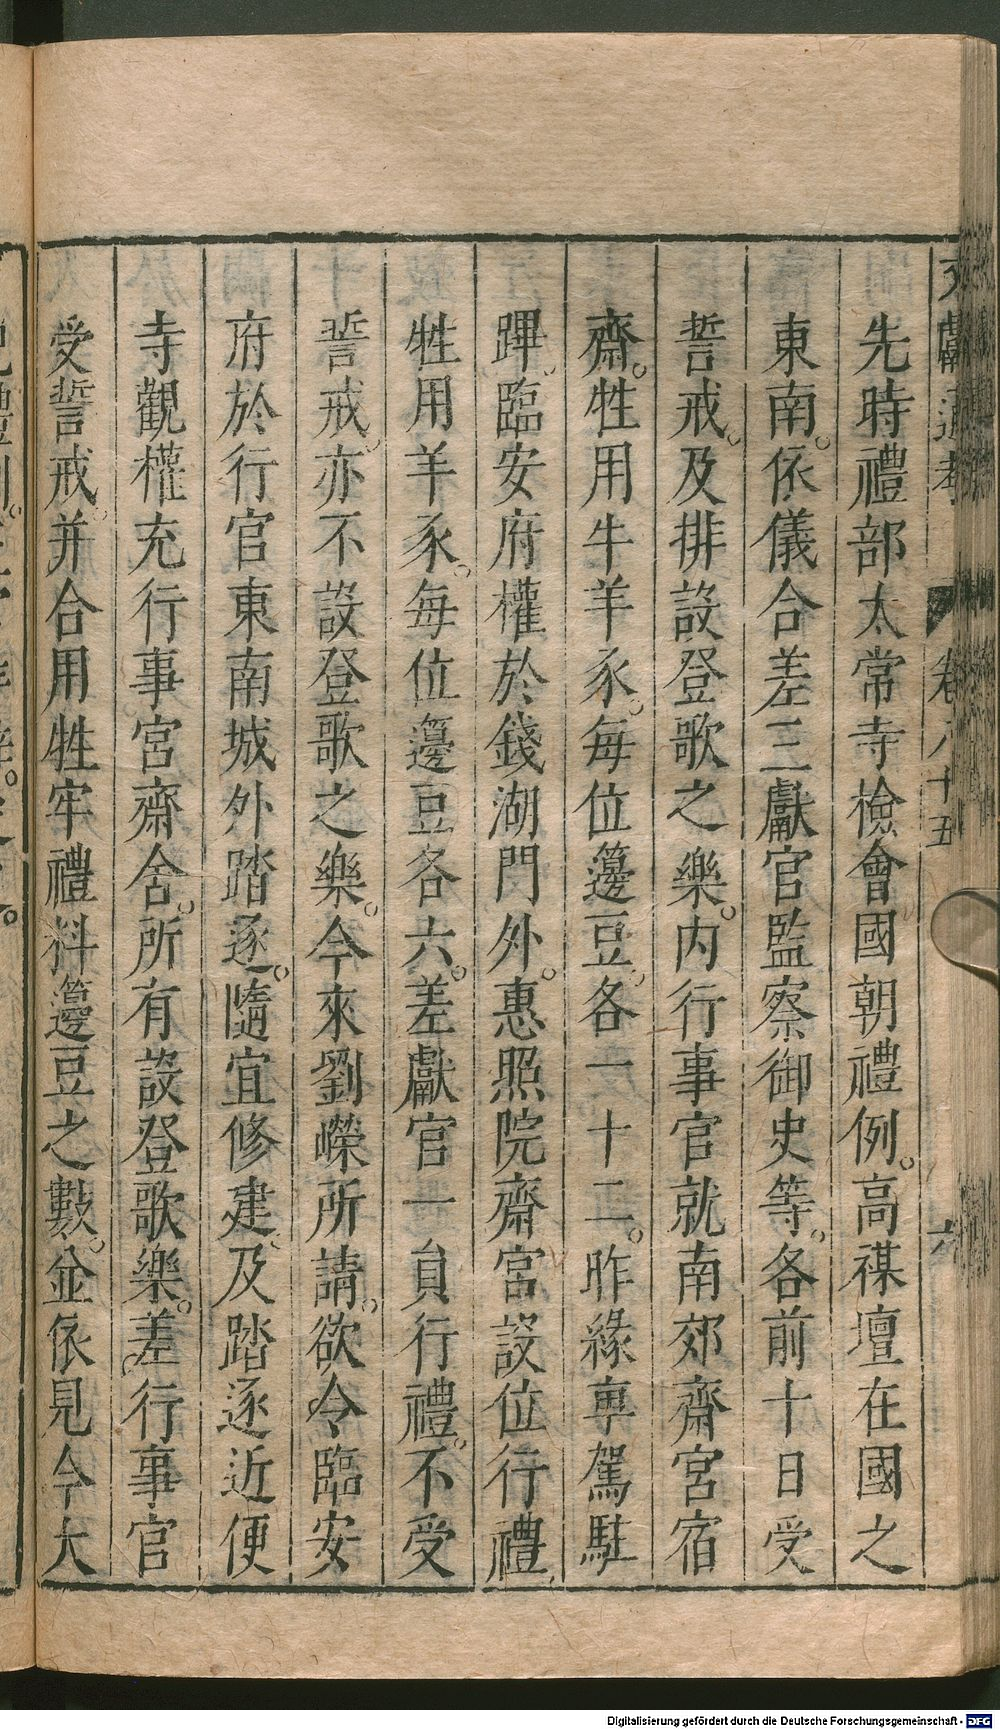 文獻通考 卷八十五 六
先時禮部太常寺檢會國朝禮例。高禖壇在國之
東南。依儀合差三獻官監察御史等。各前十日受
誓戒。及排設登歌之樂。内行事官就南郊齋宮宿
齋。牲用牛羊豕。每位籩豆各一十二。昨緣車駕駐
蹕。臨安府權於錢湖門外。惠照院齋宮設位行禮
牲用羊豕。每位籩豆各六。差獻官一員行禮。不受
誓戒。亦不設登歌之樂。今來劉嶸所請。欲令臨安
府於行宫東南城外踏逐。隨宜修建。及踏逐近便
寺觀權充行事宮齋舍。所有設登歌樂。差行事官
受誓戒。并合用牲牢禮料籩豆之數。並依見今大
Digitalisierung gefördert durch die Deutsche Forschungsgemeinschaft - DFG